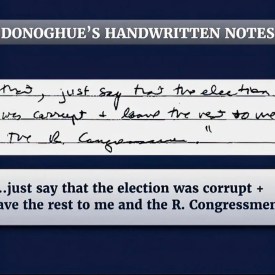 DONOGHUE'S HANDWRITTEN NOTES
that, just say that the election
was corrupt + leave the rest to me
the R. Congressmen."
...just say that the election was corrupt +
ave the rest to me and the R. Congressmen